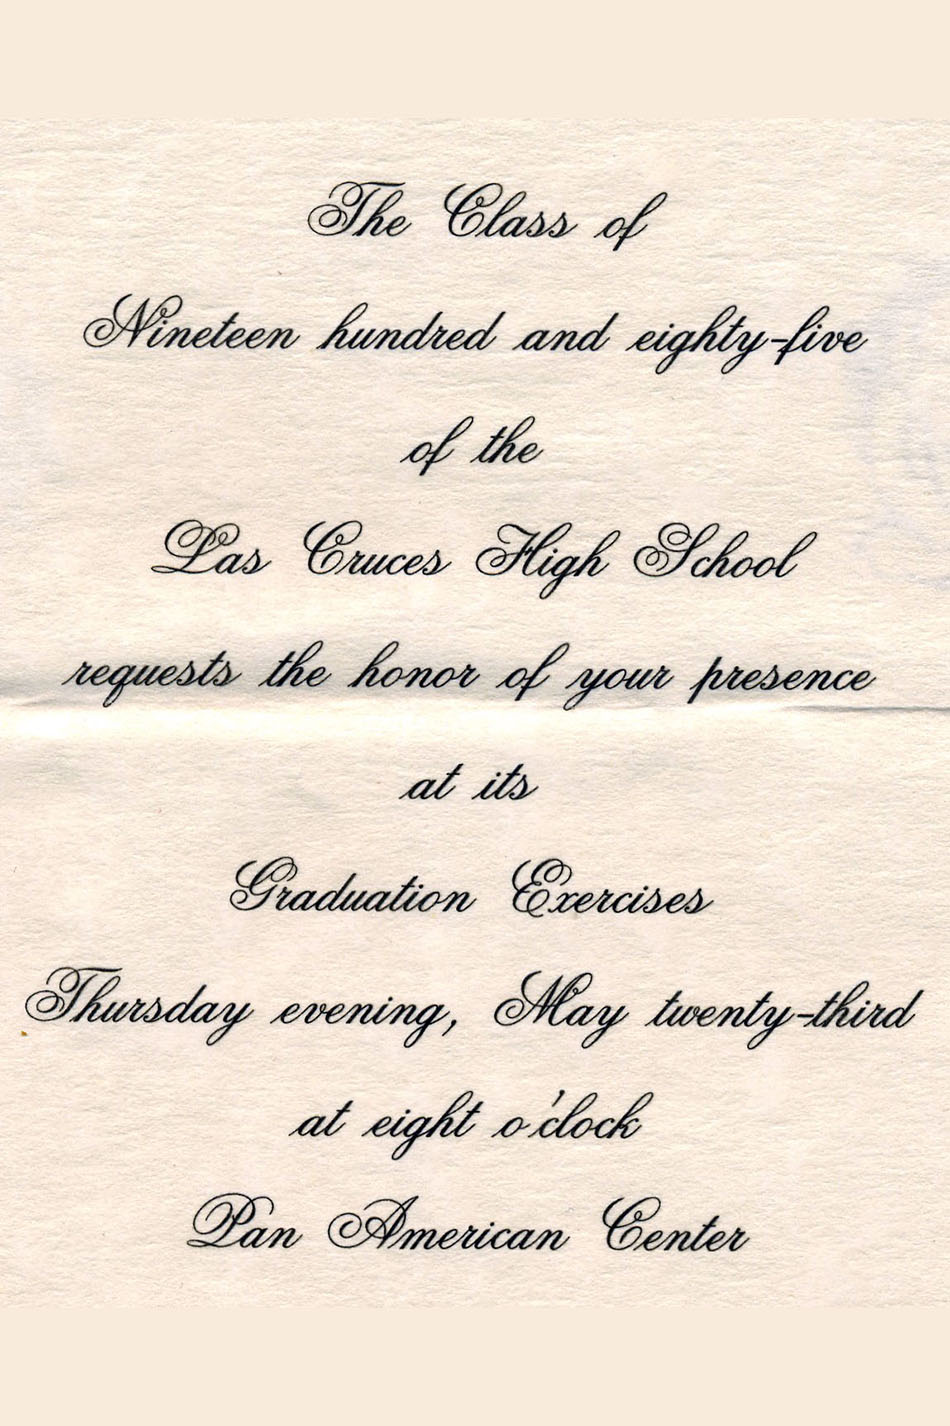 The Class of
Nineteen hundred and eighty-five
of the
Las Cruces High School
requests the honor of your presence
at its
Graduation Exercises
Thursday evening, May twenty-third
at eight o'clock
Pan American Center